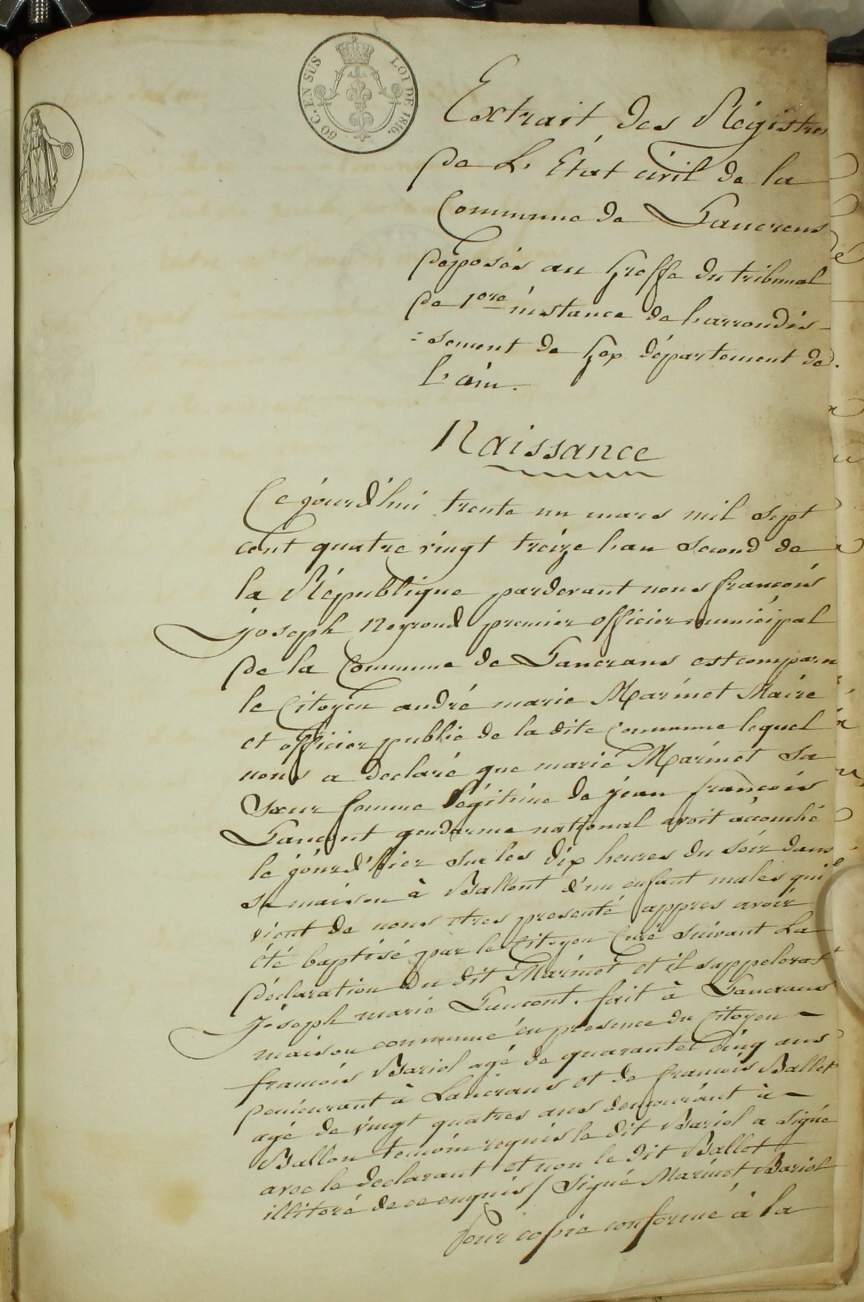 60 C. EN SUS LOI DE 1816.
Extrait des Régistres
De L'État civil de la
Commune de Lancrens
Déposés au Greffe du tribunal
De 1ere instance de larrondis-
=sement de Gex département de
L'ain.
Naissance
Ce jourd'hui trente un mars mil sept
cent quatre vingt treize l'an second de
la République pardevant nous francois
joseph Neyroud premier officier municipal
De la Commune de Lancrans est comparu
le Citoyen andré marie Marinet Maire
et officier public de la dite Commune lequel
nous a declaré que marie Marinet sa
Sœur femme légitime de jean francois
gendarme national avoit accouché
le jourd'hier sur les dix heures du soir dans
sa maison à Ballont d'un enfant males qui
vient de nous etres presenté appres avoir
été baptisé par le Citoyen Curé suivant La
Déclaration du dit Marinet et il sappelerat
Joseph marie fait à Lancrans
maison commune en presence du Citoyen
francois Bariol agé de quarantes cinq ans
Demeurant à Lancrans et de francois Ballet
agé de vingt quatres ans demeurant à
Ballon temoin requis le dit Bariol a signé
avec le declarant et non le dit Ballet
illiteré de ce enquis / Signé Marinet Bariol
Pour copie conforme à la